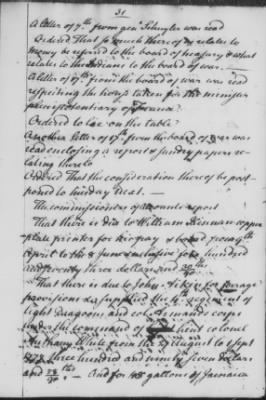 31
A letter of 7th from gen Schuyler was read
Ordered That so much thereof as relates to
money be referred to the board of treasury & what
relates to the Indians to the board of war.
A letter of 9th from the board of war was read
respecting the house taken for the minister
plenipotentiary of France.
Ordered to lie on the table.
Another letter of 17th from the board of war was
read enclosing a report & sundry papers re-
lating thereto
Ordered That the consideration thereof be post-
poned to Monday next. —
The commissioners of accounts report
That there is due to William Kinnan copper
plate printer for
April to the 8 June inclusive four hundred
and seventy three dollars and
That there is due to John Fitzje for forage
provisions &c supplied the 4th regiment of
light dragoons and col. Armands corps
under the command of lieut colonel
Anthony White from the 27 August to 1 Sept
three hundred and ninety seven dollars
and — And for 40 gallons of Jamaica